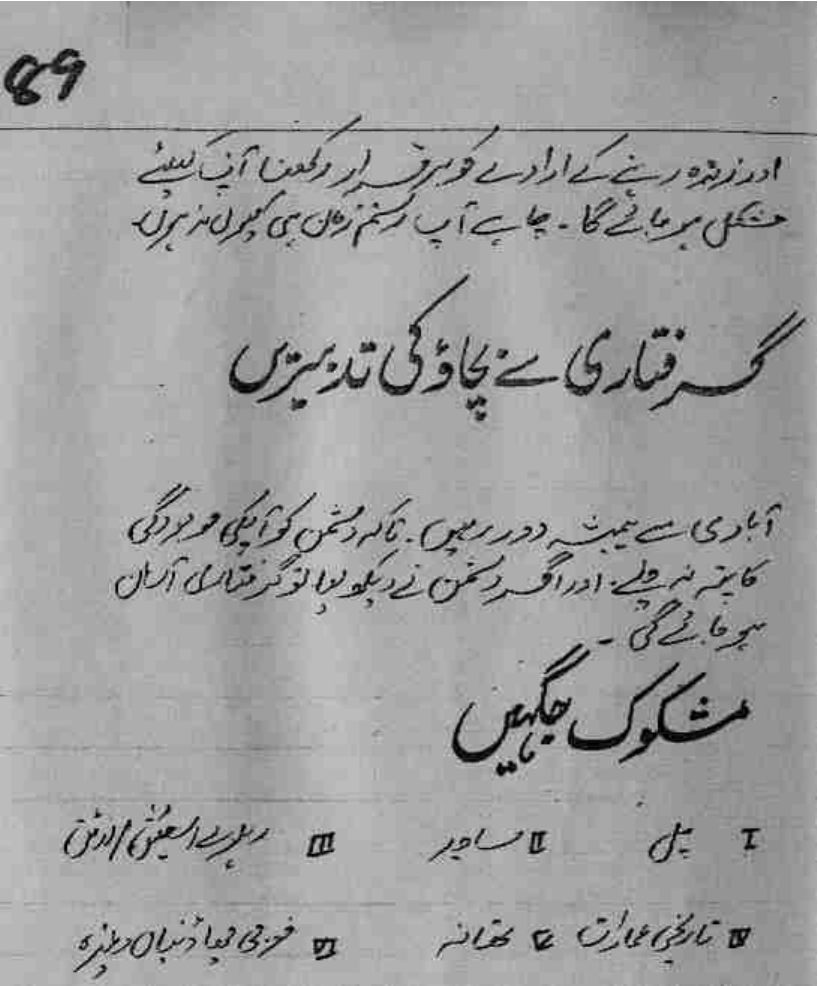 89
اور زندہ رہنے کے ارادے کو برقرار رکھنا آپ کیلئے
مشکل ہو جائے گا۔ چاہے آپ رستم زماں ہی کیوں نہ ہوں۔
گرفتاری سے بچاؤ کی تدبیریں
آبادی سے ہمیشہ دور رہیں۔ تاکہ دشمن کو آپکی موجودگی
کا پتہ نہ چلے۔ اور اگر دشمن نے دیکھ لیا تو گرفتاری آسان
ہو جائے گی۔
مشکوک جگہیں
I پل II مساجد III ریلوے اسٹیشن /
IV تاریخی عمارات V تھانہ VI فوجی چھاؤنیاں وغیرہ